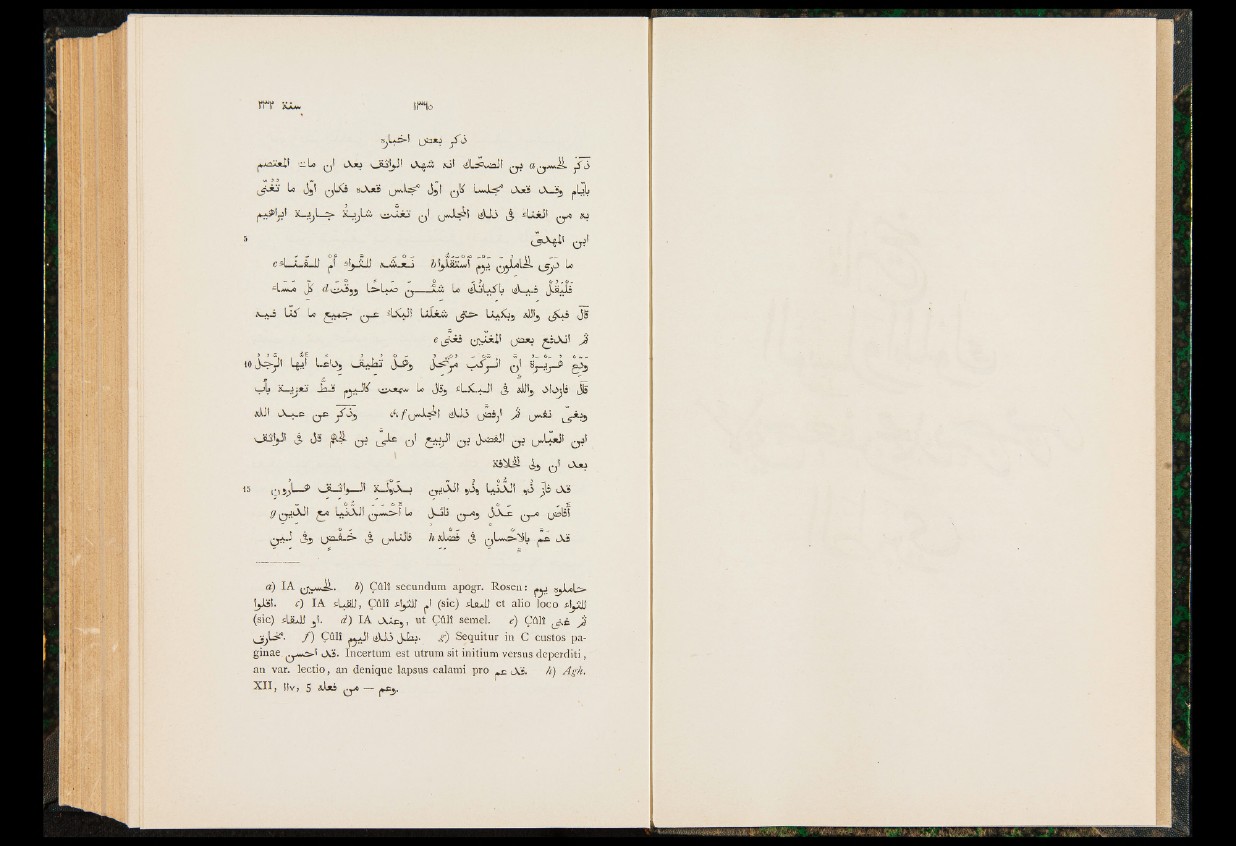 سنة ٢٣٢ ١٣٦٥
ذكر بعض اخباره
ذُكر لحسن a بن الضحّاك انه شهد الواثق بعد ان مات المعتصم
بايّام وقد قعد مجلسا كان اوّل مجلس قعده فكان اوّل ما تُغُنّى
به من الغناء فى ذلك المجلس ان تغنّت شارية جارية ابرهيم
5 ابن المهدىّ
ما دَرَى الحاملون يَوْمَ ٱسْتَقَلُّوا b نَعْشَه للثَّواء أَمْ للفَناء c
فَلْيَقُلْ فيك باكياتُك ما شئْن صَباحًا ووقْتَ d كلّ مَسَاء
قال فبكى والله وبكينا حتى شغلنا البكاء عن جميع ما كنّا فيه
ثم اندفع بعض المغنّين فغنّى e
10 وَدِّعْ هُرَيْرَةَ إنّ الرَّكْبَ مُرْتَحِلُ وهَلْ تُطيقُ وداعًا أيُّها الرَّجُلُ
قال فازداد والله فى البكاء وقال ما سمعت كاليوم قطّ تعزية بأب
ونعى نفس ثم ارفضّ ذلك المجلس f، وذُكر عن عبد الله
ابن العبّاس بن الفضل بن الربيع ان علىّ بن الجهم قال فى الواثق
بعد ان ولى الخلافة
15 قد فازَ ذُو الدُّنْيا وذُو الدّين بدَوْلَة الواثق هارون
أفاضَ من عَدْل ومن نائل ما أحْسَنَ الدُّنْيا مع الدّين g
قد عَمَّ بالإحْسان فى فَضْله h فالناس فى خَفْض وفى لين
a) IA الحسين. b) Çûlî secundum apogr. Rosen: حاملوه يوم
اقلوا. c) IA للقباء, Çûlî للثواء ام للعفاء (sic) et alio loco للثواء
او للعفاء (sic). d) IA وعند, ut Çûlî semel. e) Çûlî ثم غنى
مخارق. f) Çûlî بطل ذلك اليوم. g) Sequitur in C custos pa-
ginae قد احسن. Incertum est utrum sit initium versus deperditi,
an var. lectio, an denique lapsus calami pro قد عم. h) Agh.
XII, ١١٧, 5 وعم — من فعله.